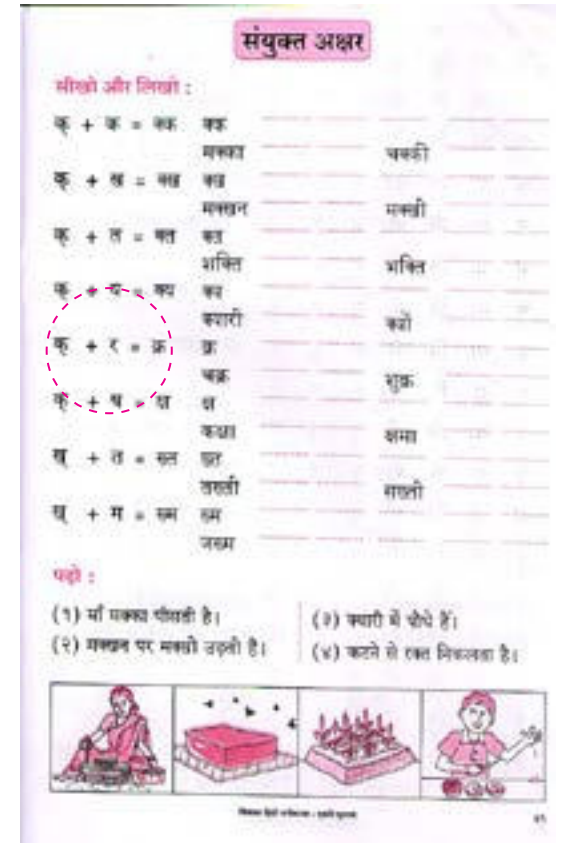 संयुक्त अक्षर
सीखो और लिखो :
क् + क = क्क क्क
मक्का चक्की
क् + ख = क्ख क्ख
मक्खन मक्खी
क् + त = क्त क्त
शक्ति भक्ति
क् + य = क्य क्य
क्यारी क्यों
क् + र = क्र क्र
चक्र शुक्र
क् + ष = क्ष क्ष
कक्षा क्षमा
ख् + त = ख्त ख्त
तख्ती सख्ती
ख् + म = ख्म ख्म
जख्म
पढ़ो :
(१) माँ मक्का पीसती है।
(२) मक्खन पर मक्खी उड़ती है।
(३) क्यारी में पौधे हैं।
(४) कटने से रक्त निकलता है।